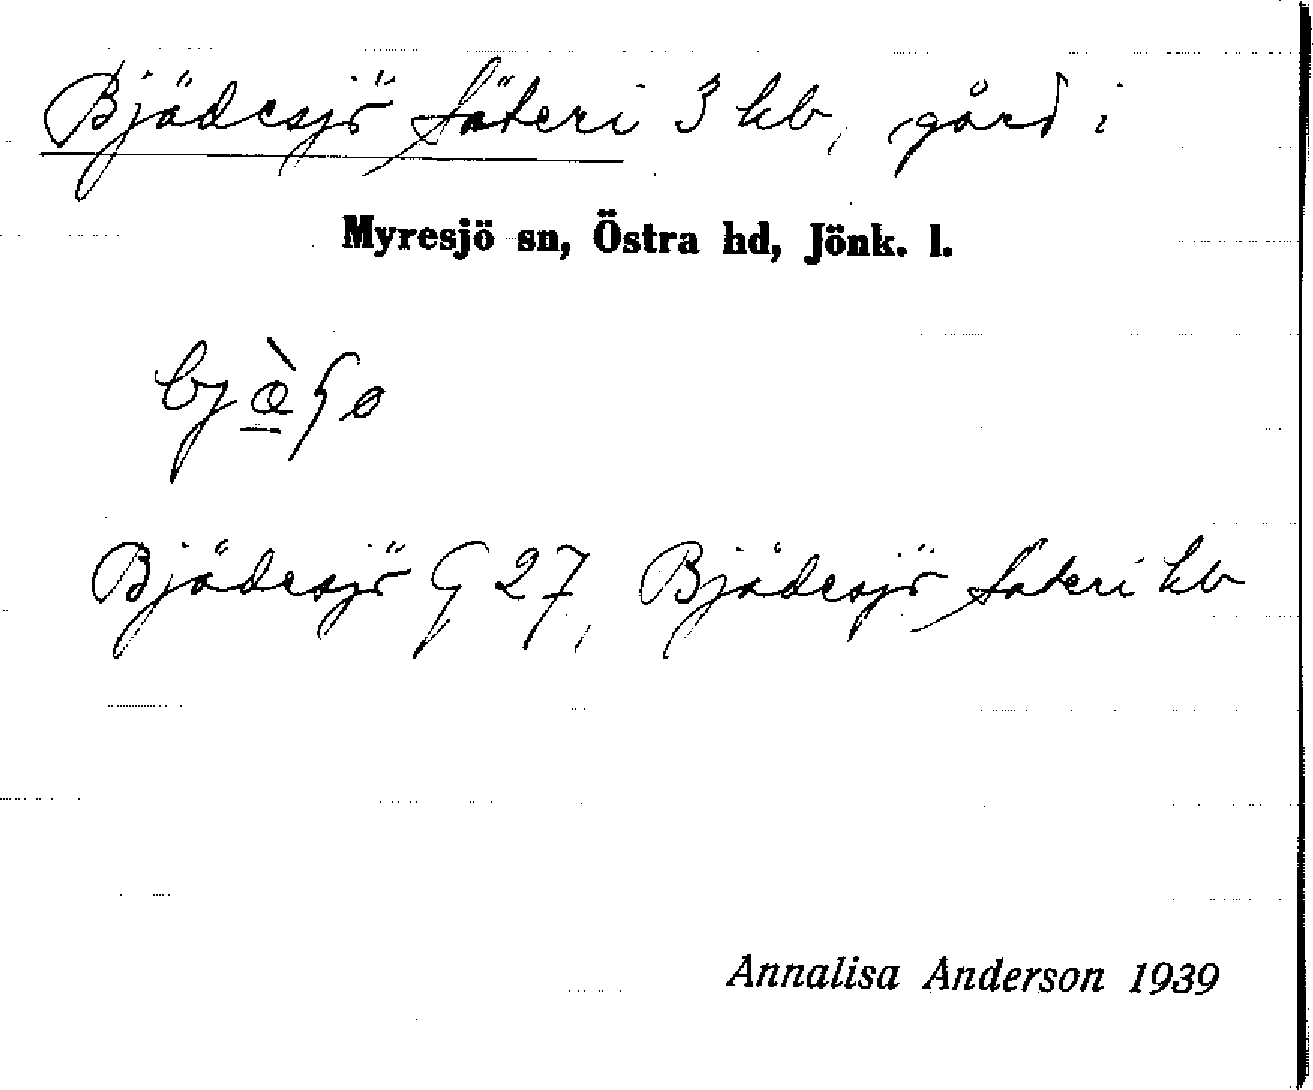 Bjädesjö Säteri 3 hb, gård i
Myresjö sn, Östra hd, Jönk. l.
Bjädesjö G 27, Bjädesjö Säteri hb
Annalisa Anderson 1939